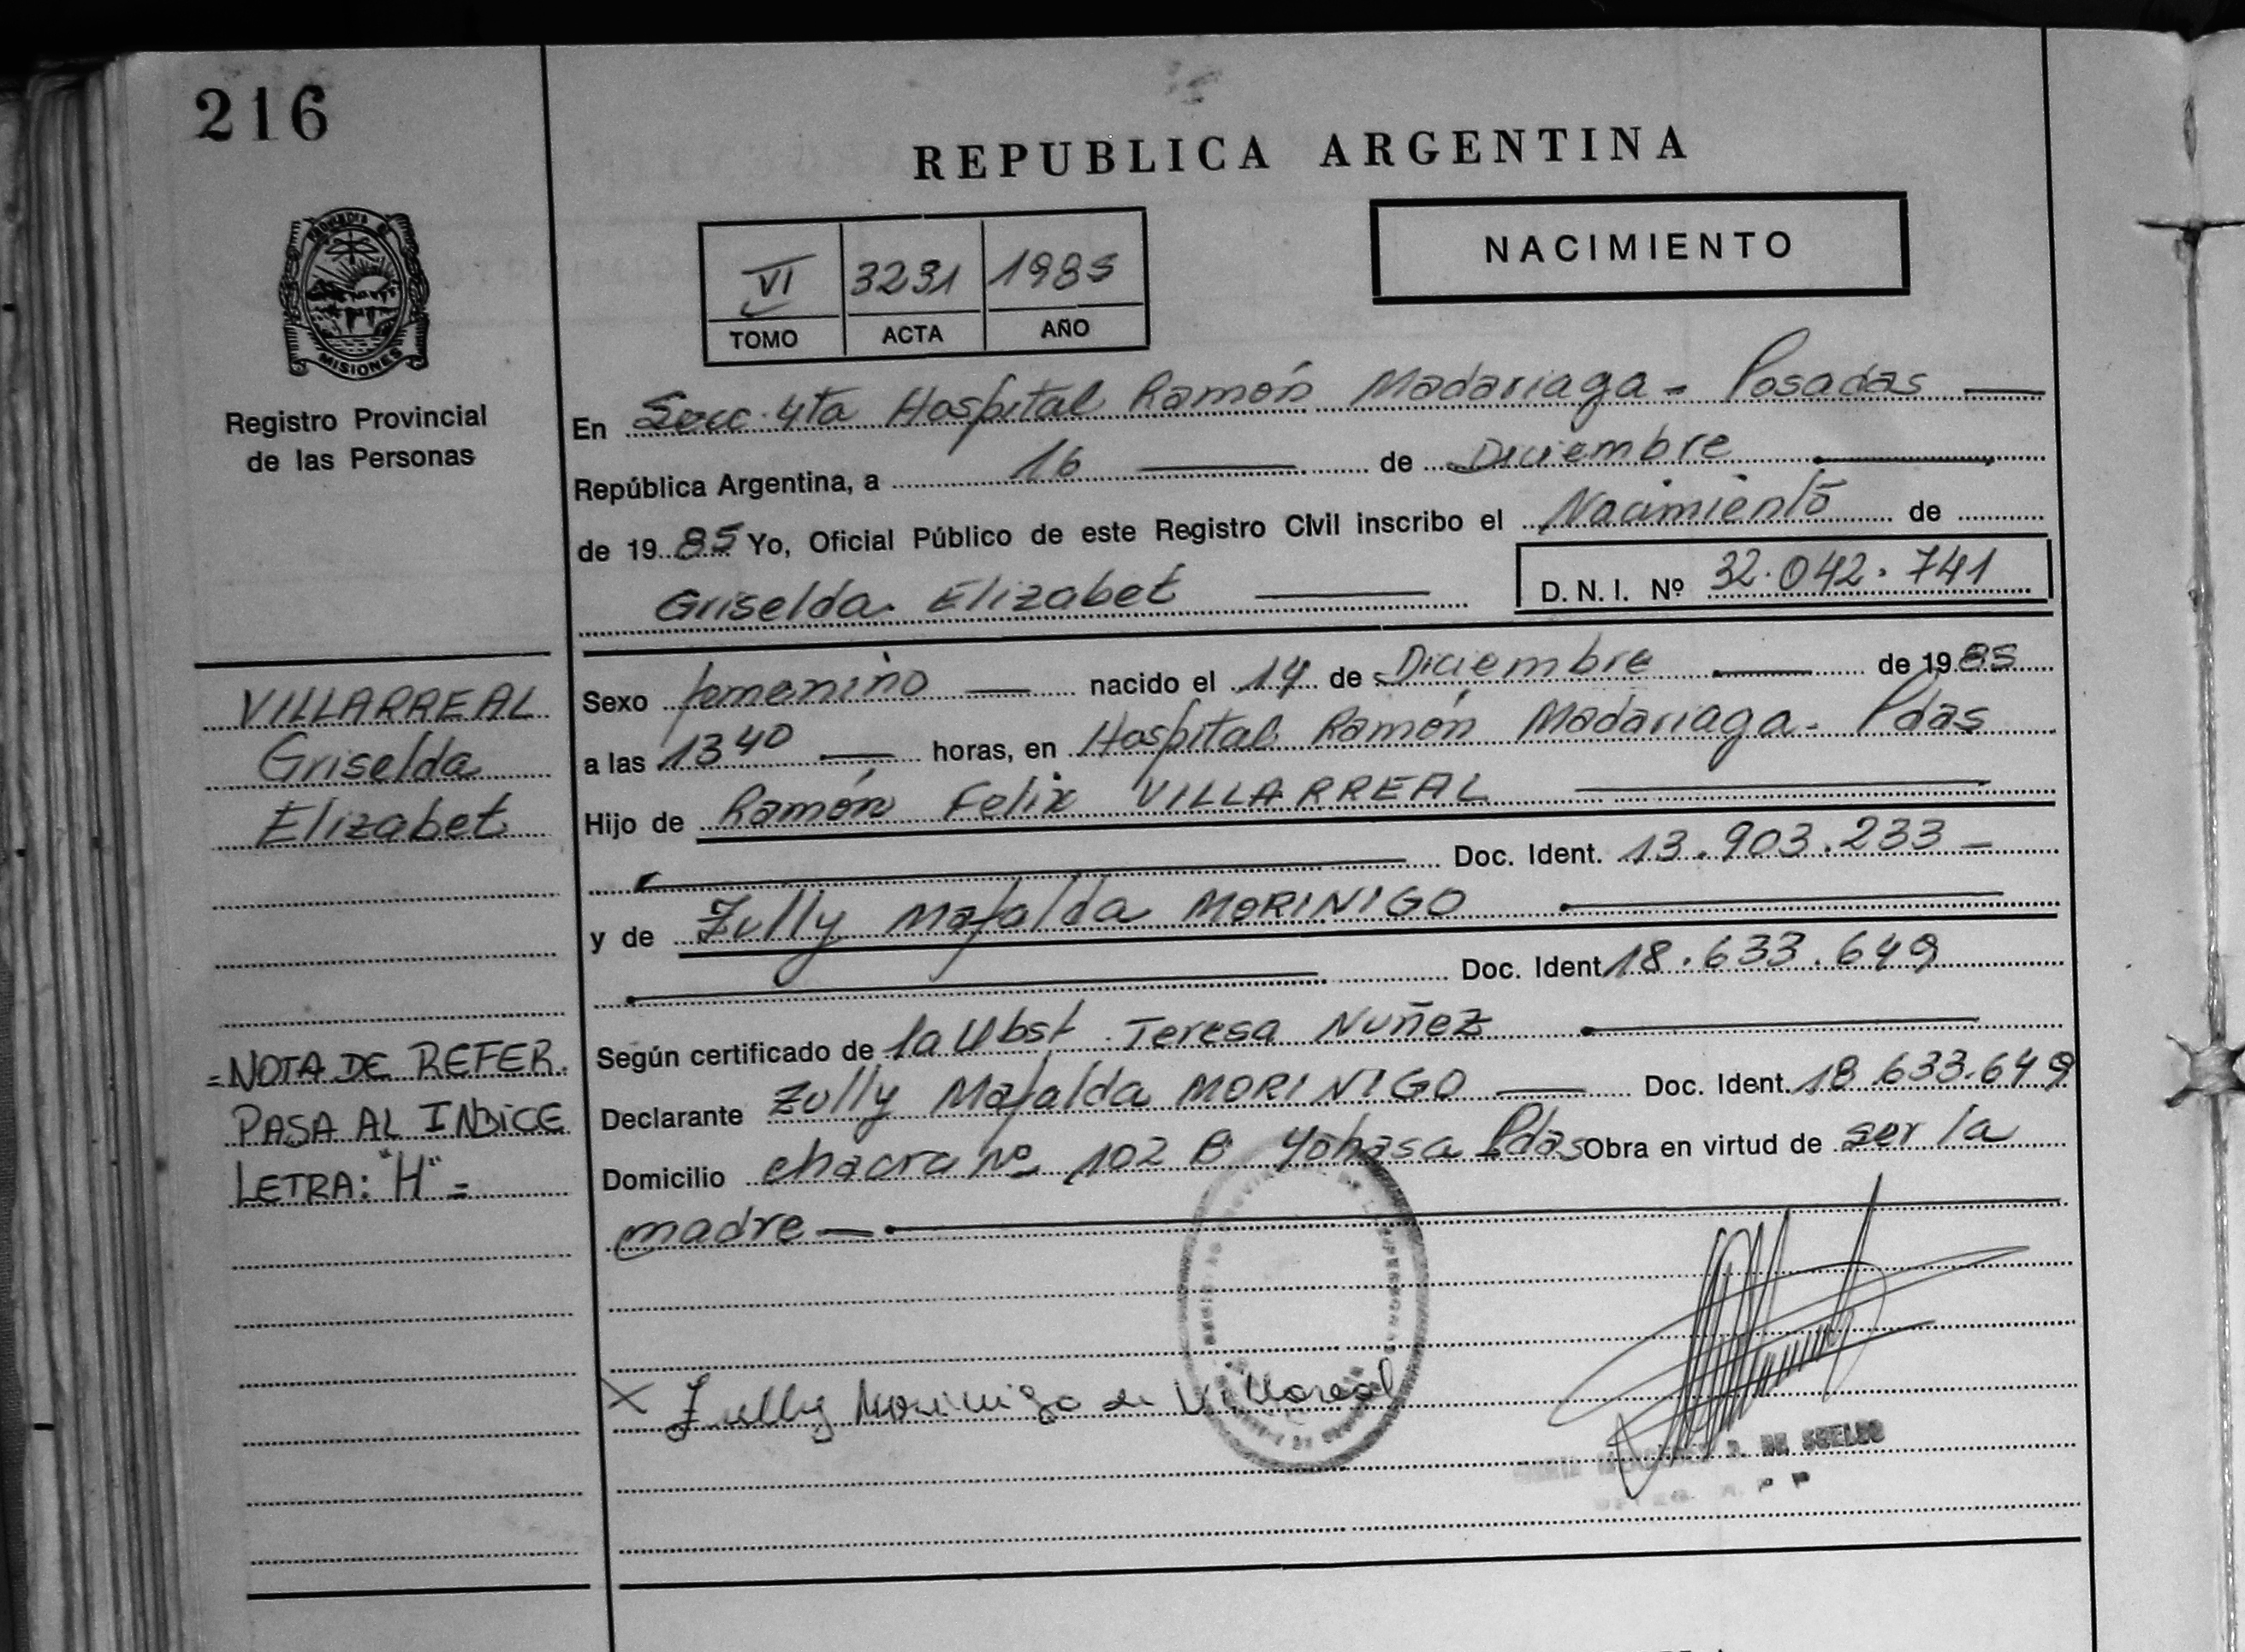 216
REPUBLICA ARGENTINA
NACIMIENTO
VI 3231 1985
TOMO ACTA AÑO
PROVINCIA DE
MISIONES
Registro Provincial
de las Personas
En Secc. 4ta Hospital Ramón Madariaga - Posadas
República Argentina, a 16 de Diciembre
de 1985 Yo, Oficial Público de este Registro Civil inscribo el Nacimiento de
Griselda Elizabet D. N. I. Nº 32.042.741
VILLARREAL
Griselda
Elizabet
Sexo femenino nacido el 14 de Diciembre de 1985
a las 13 40 horas, en Hospital Ramón Madariaga - Pdas
Hijo de Ramón Felix VILLARREAL
Doc. Ident. 13.903.233
y de Zully Mafalda MORINIGO
Doc. Ident. 18.633.649
Según certificado de la Obst. Teresa Nuñez
Declarante Zully Mafalda MORINIGO Doc. Ident. 18.633.649
Domicilio chacra Nº 102 Bº Yohasa Pdas Obra en virtud de ser la
madre
=NOTA DE REFER.
PASA AL INDICE
LETRA: "H"=
X Zully Morinigo de Villareal
DE SUELDO